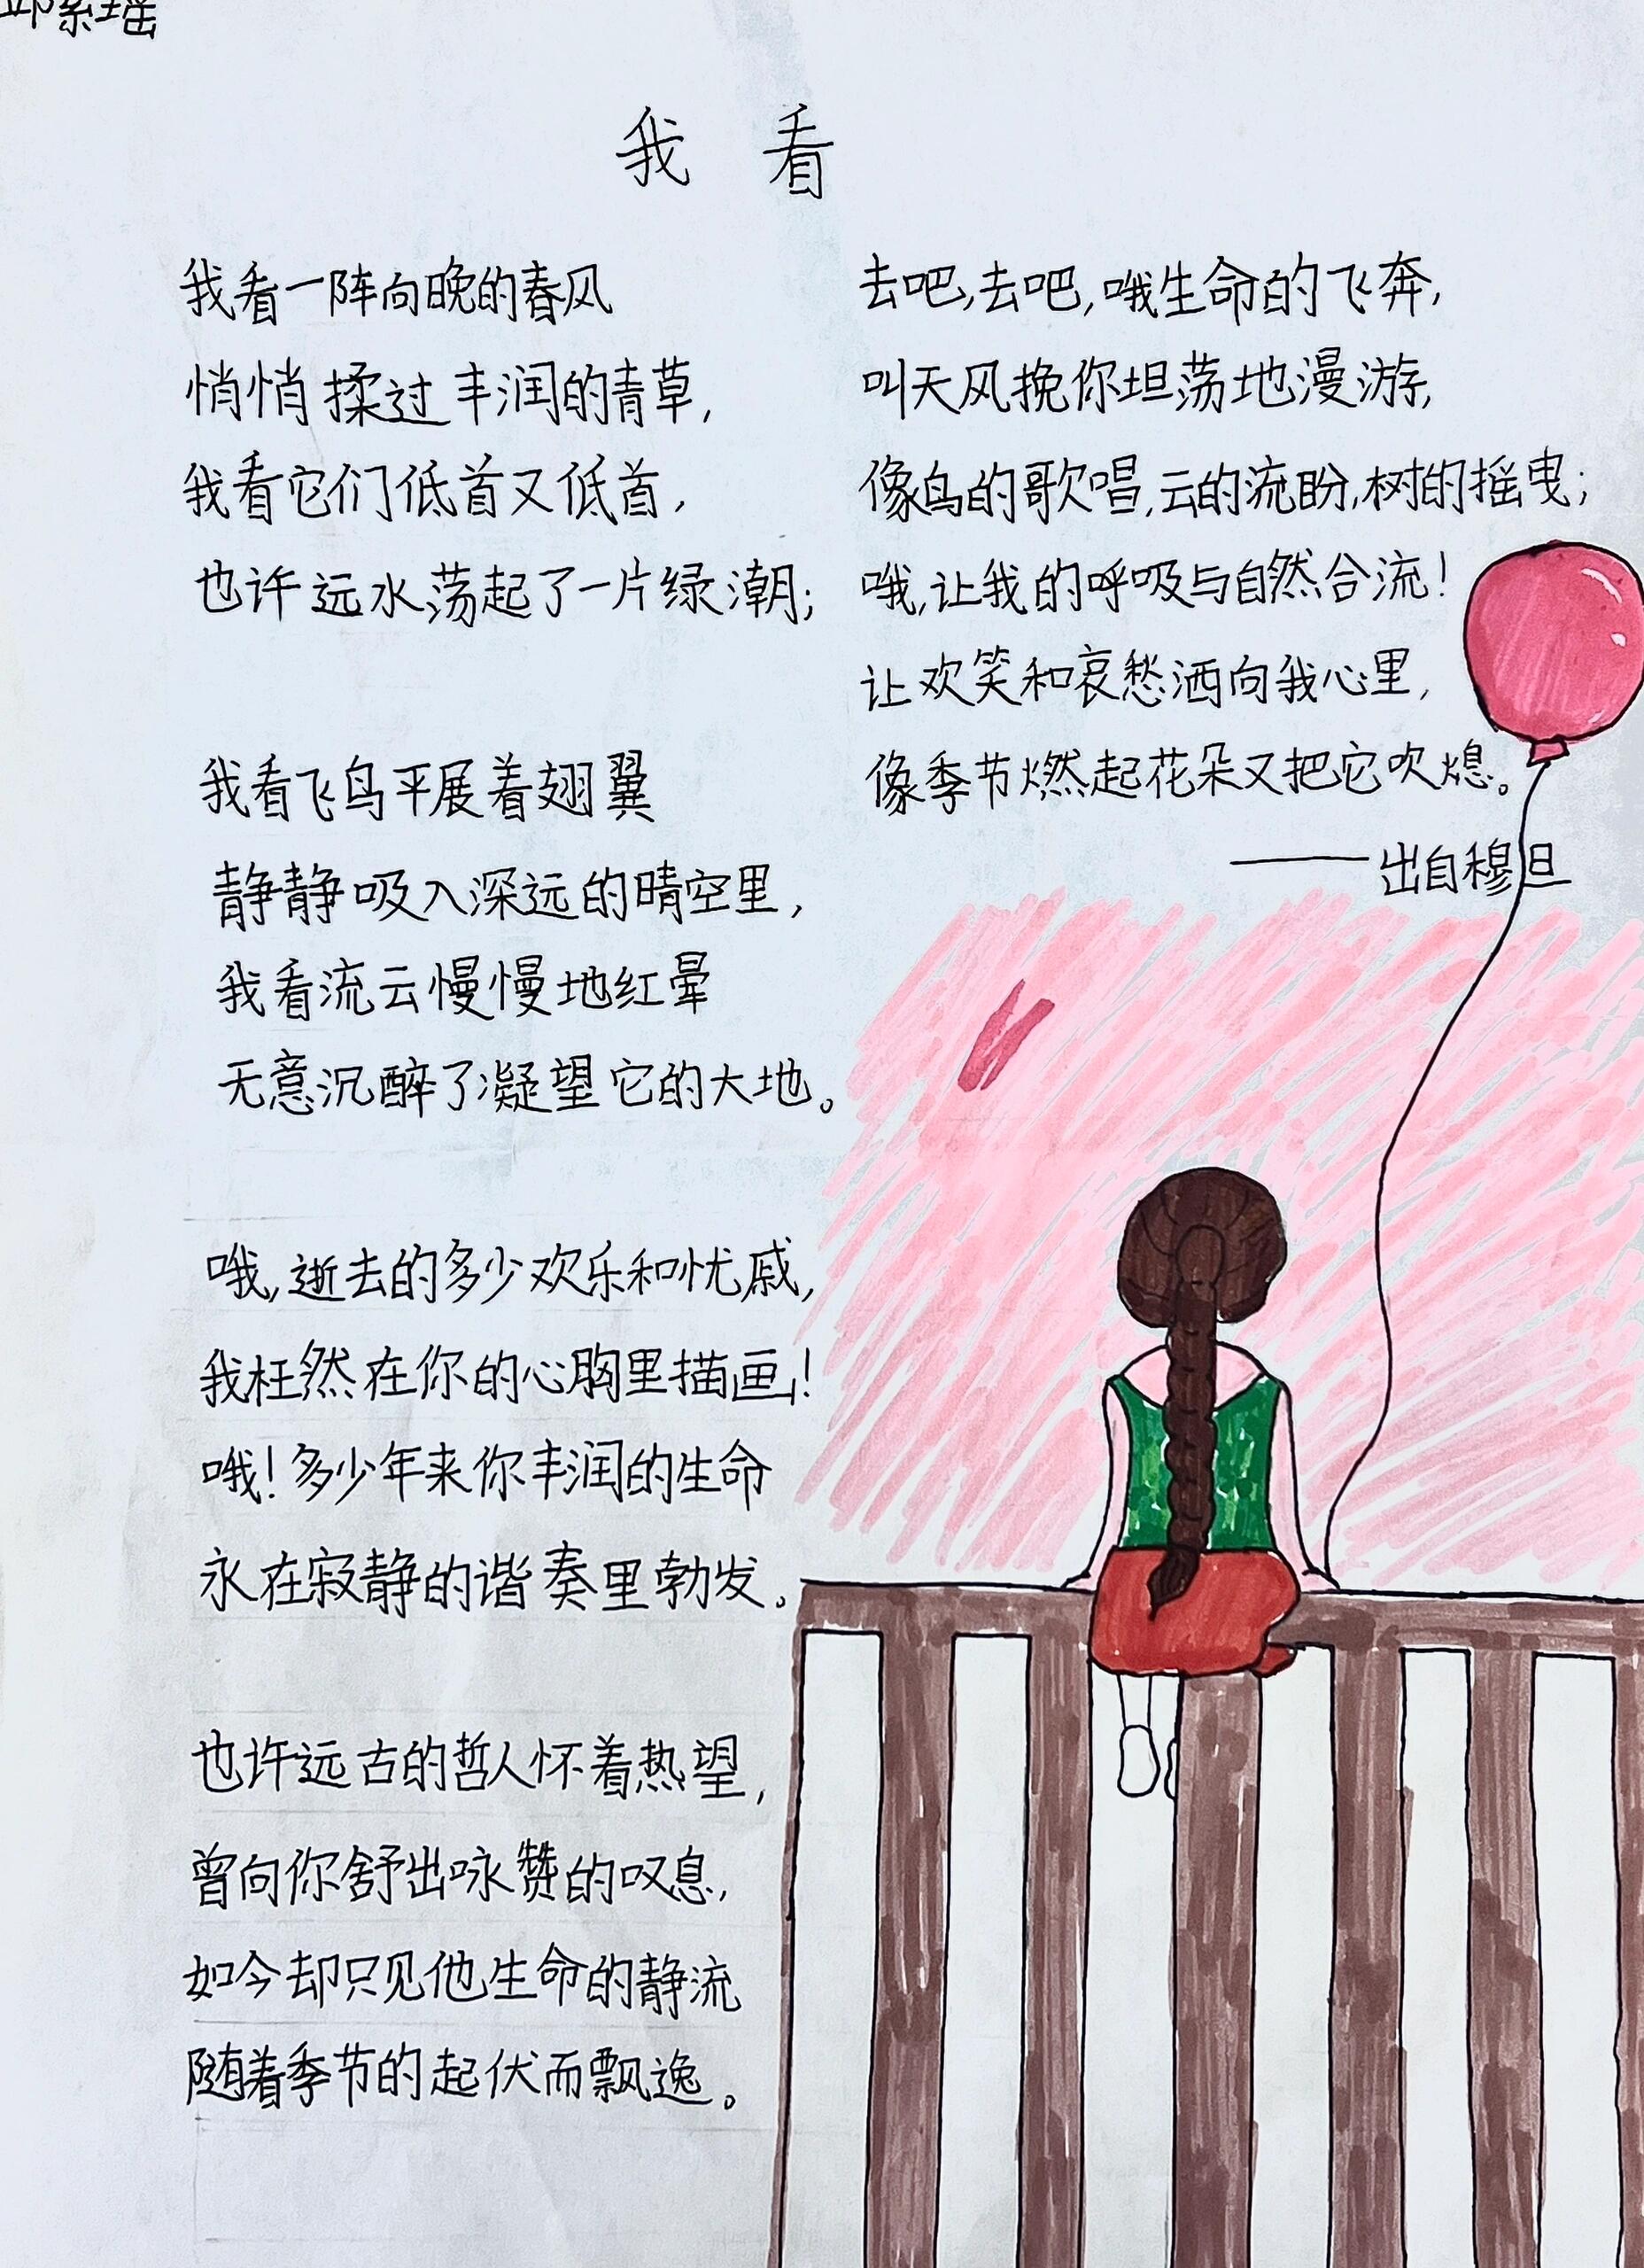 我看
我看一阵向晚的春风
悄悄揉过丰润的青草,
我看它们低首又低首,
也许远水荡起了一片绿潮;
我看飞鸟平展着翅翼
静静吸入深远的晴空里,
我看流云慢慢地红晕
无意沉醉了凝望它的大地。
哦,逝去的多少欢乐和忧戚,
我枉然在你的心胸里描画!
哦!多少年来你丰润的生命
永在寂静的谐奏里勃发。
也许远古的哲人怀着热望,
曾向你舒出咏赞的叹息,
如今却只见他生命的静流
随着季节的起伏而飘逸。
去吧,去吧,哦生命的飞奔,
叫天风挽你坦荡地漫游,
像鸟的歌唱,云的流盼,树的摇曳;
哦,让我的呼吸与自然合流!
让欢笑和哀愁洒向我心里,
像季节燃起花朵又把它吹熄。
——出自穆旦